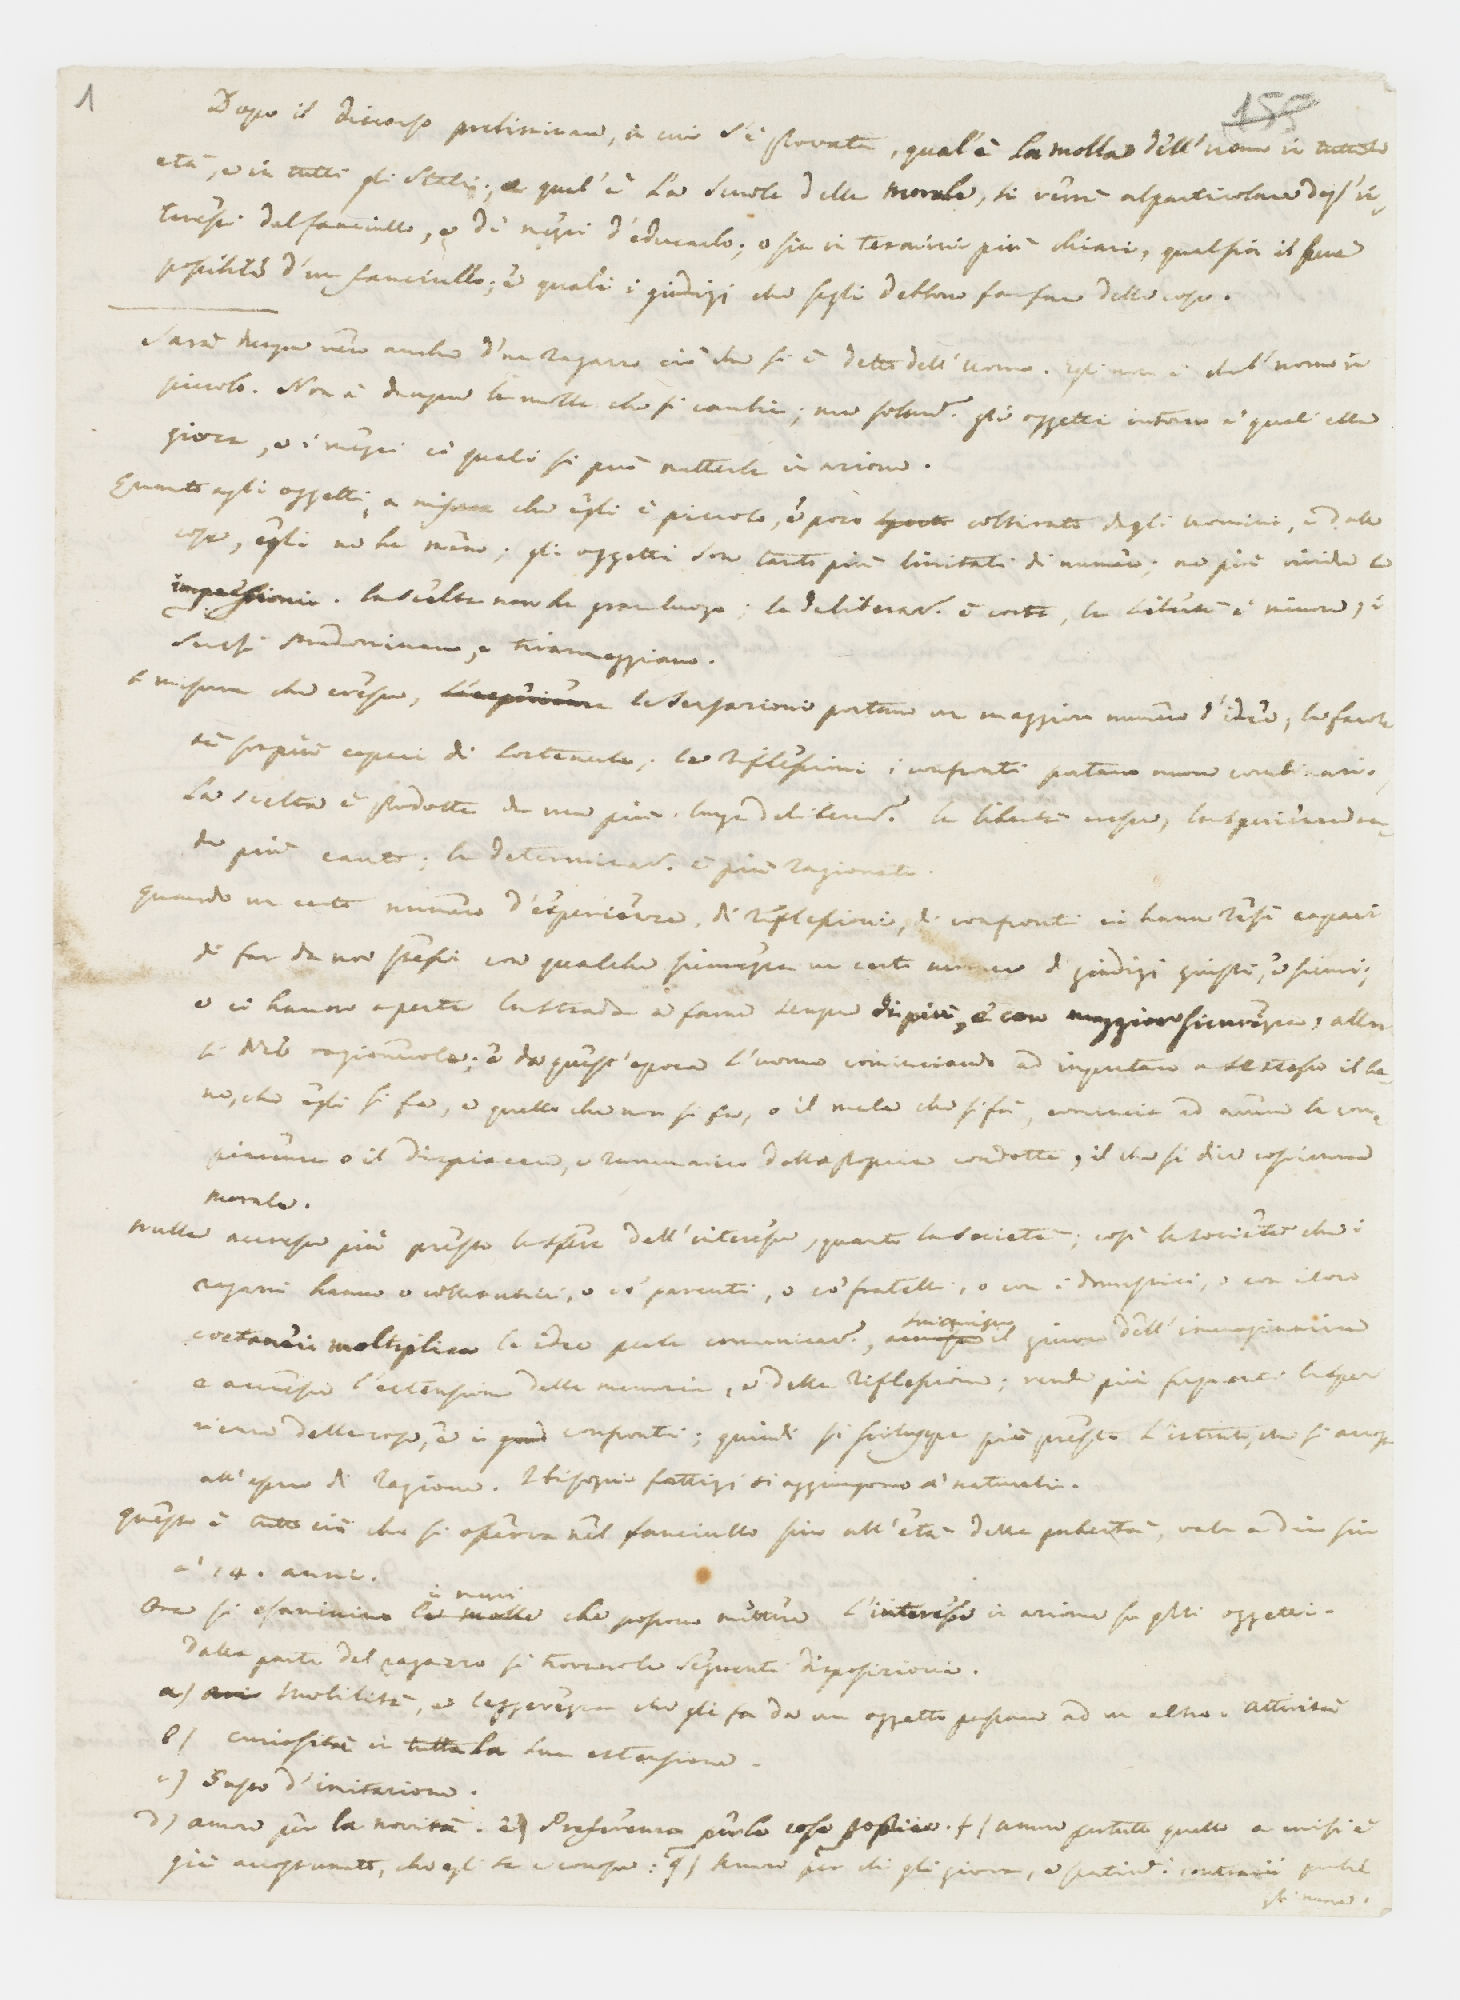 1
159
Dopo il discorso preliminare, in cui s'è provato, qual'è la molla dell'uomo in tutte le
età, e in tutti gli Stati; e qual'è la scuola della morale, si verrà al particolare degl'in-
teressi del fanciullo, e de' mezzi d'educarlo; o sia in termini più chiari, qual sia il bene
possibile d'un fanciullo; e quali i giudizj che se gli debbono far fare delle cose.
Sarà dunque vero anche d'un ragazzo ciò che si è detto dell'uomo. Egli non è che l'uomo in
piccolo. Non è dunque la molla che si cambia; ma solam. gli oggetti intorno a' quali ella
giuoca, e i mezzi co' quali si può metterla in azione.
Quanto agli oggetti, a misura che egli è piccolo, e poco coltivato dagli uomini, e dalle
cose, egli ne ha meno; gli oggetti son tanto più limitati di numero; ma più vivide le
impressioni. la scelta non ha gran luogo; la deliberaz. è corta, la libertà è minore, i
sensi predominano, e tiranneggiano.
a misura che cresce, l'esperienza le sensazioni portano un maggior numero d'idee, le facol-
tà son più capaci di contenerle; le riflessioni i confronti portano nuove combinazi.
La scelta è prodotta da una più lunga deliberaz. la libertà cresce, l'esperienza ren-
de più cauto; la determinaz. è più ragionata.
quando un certo numero d'esperienze, di riflessioni, di confronti ci hanno resi capaci
di far da noi stessi con qualche sicurezza un certo numero di giudizj giusti, e sicuri;
e ci hanno aperta la strada a farne sempre di più, e con maggiore sicurezza, allora
si è ragionevole; e da quest'epoca l'uomo cominciando ad imputare a se stesso il be-
ne, che egli si fa, e quello che non si fa, o il male che si fa, comincia ad avere la com-
piacenza o il dispiacere, e rammarico della propria condotta, il che si dice coscienza
morale.
nulla accresce più presto la sfera dell'interesse, quanto la società; così la società che i
ragazzi hanno o coltivatori, o co' parenti, o co' fratelli, o con i domestici, o con i loro
coetanei moltiplica le idee per la comunicaz., il giuoco dell'imaginazione
e accresce l'estensione della memoria, e della riflessione; rende più frequenti le spe-
rienze delle cose, e i confronti; quindi si sviluppa più presto l'istinto, che si accosta
all'epoca di ragione. I bisogni fattizj si aggiungono a' naturali.
questo è tutto ciò che si osserva nel fanciullo sino all'età della pubertà, vale a dire sin
a' 14. anni.
i mezzi
Ora si esaminino le molle che possono mettere l'interesse in azione su gli oggetti.
Dalla parte del ragazzo si trovano le seguenti disposizioni.
a) mobilità, e leggerezza che gli fa da un oggetto passare ad un altro. attività
b) curiosità in tutta la sua estensione.
c) Senso d'imitazione.
d) amore per la novità. e) Preferenza per le cose f) amore per tutto quello a cui si è
già accostumato, che egli sa e conosce: g) Amore per chi gli giova, e